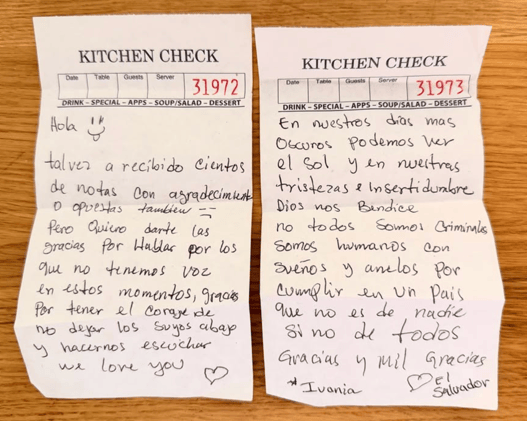 KITCHEN CHECK
Date Table Guests Server 31972
DRINK – SPECIAL – APPS – SOUP/SALAD – DESSERT
Hola
talvez a recibido cientos
de notas con agradecimiento
o opuestas tambien
Pero Quiero darte las
gracias Por Hablar por los
que no tenemos voz
en estos momentos, gracias
Por tener el coraje de
no dejar los suyos abajo
y hacernos escuchar
we love you
KITCHEN CHECK
Date Table Guests Server 31973
DRINK – SPECIAL – APPS – SOUP/SALAD – DESSERT
En nuestros dias mas
Oscuros podemos ver
el Sol y en nuestras
tristezas e Insertidumbre
Dios nos Bendice
no todos Somos Criminales
Somos humanos con
Sueños y anelos por
Cumplir en un Pais
que no es de nadie
Si no de todos
Gracias y mil Gracias
*Ivania
El
Salvador